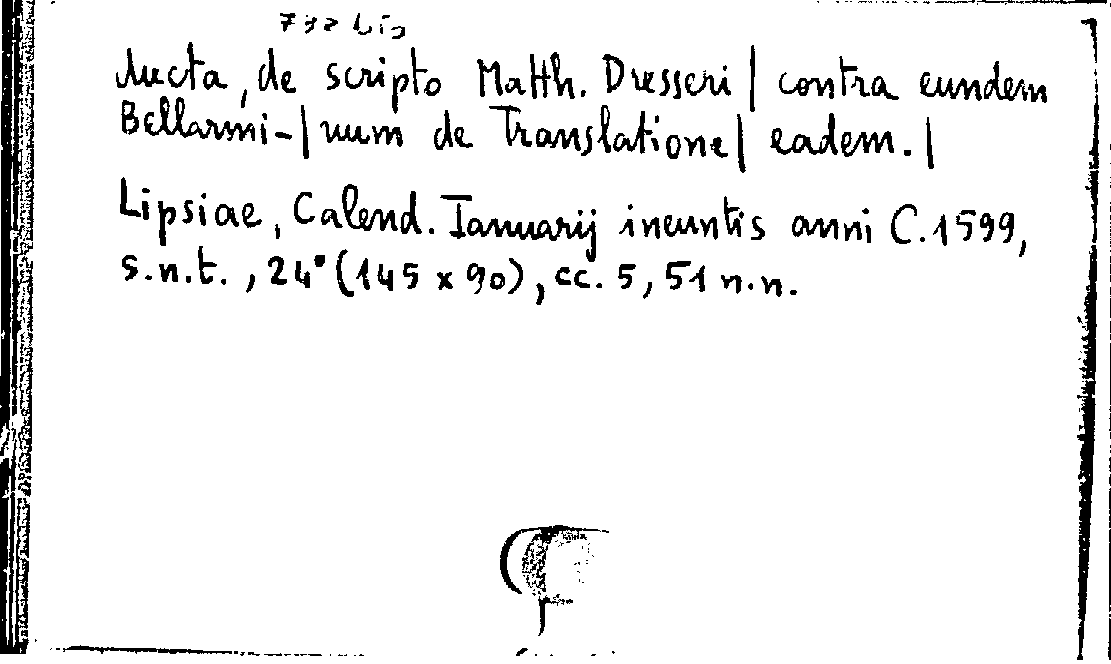 732 bis
Aucta, de scripto Matth. Dresseri | contra eundem
Bellarmi-| num de Translatione | eadem. |
Lipsiae, Calend. Ianuarij ineuntis anni C.1599,
s.n.t., 24° (145 x 90), cc. 5, 51 n.n.